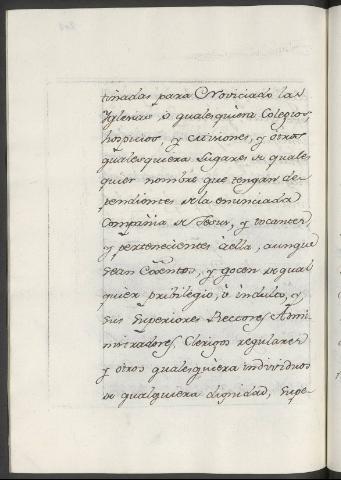 tinadas para Noviciado las
Yglesias, o qualesquiera Colegios,
hospicios, y misiones, y otros
qualesquiera Lugares de quales
quier nombre que tengan de-
pendientes de la enunciada
Compañia de Jesus, y tocantes
y pertenecientes à ella, aunque
sean Esentos, y gocen de qual
quier pribilegio, ò indulto, y
sus Superiores Rectores Admi-
nistradores Clerigos regulares
y otros qualesquiera individuos
de qualquiera dignidad, supe-